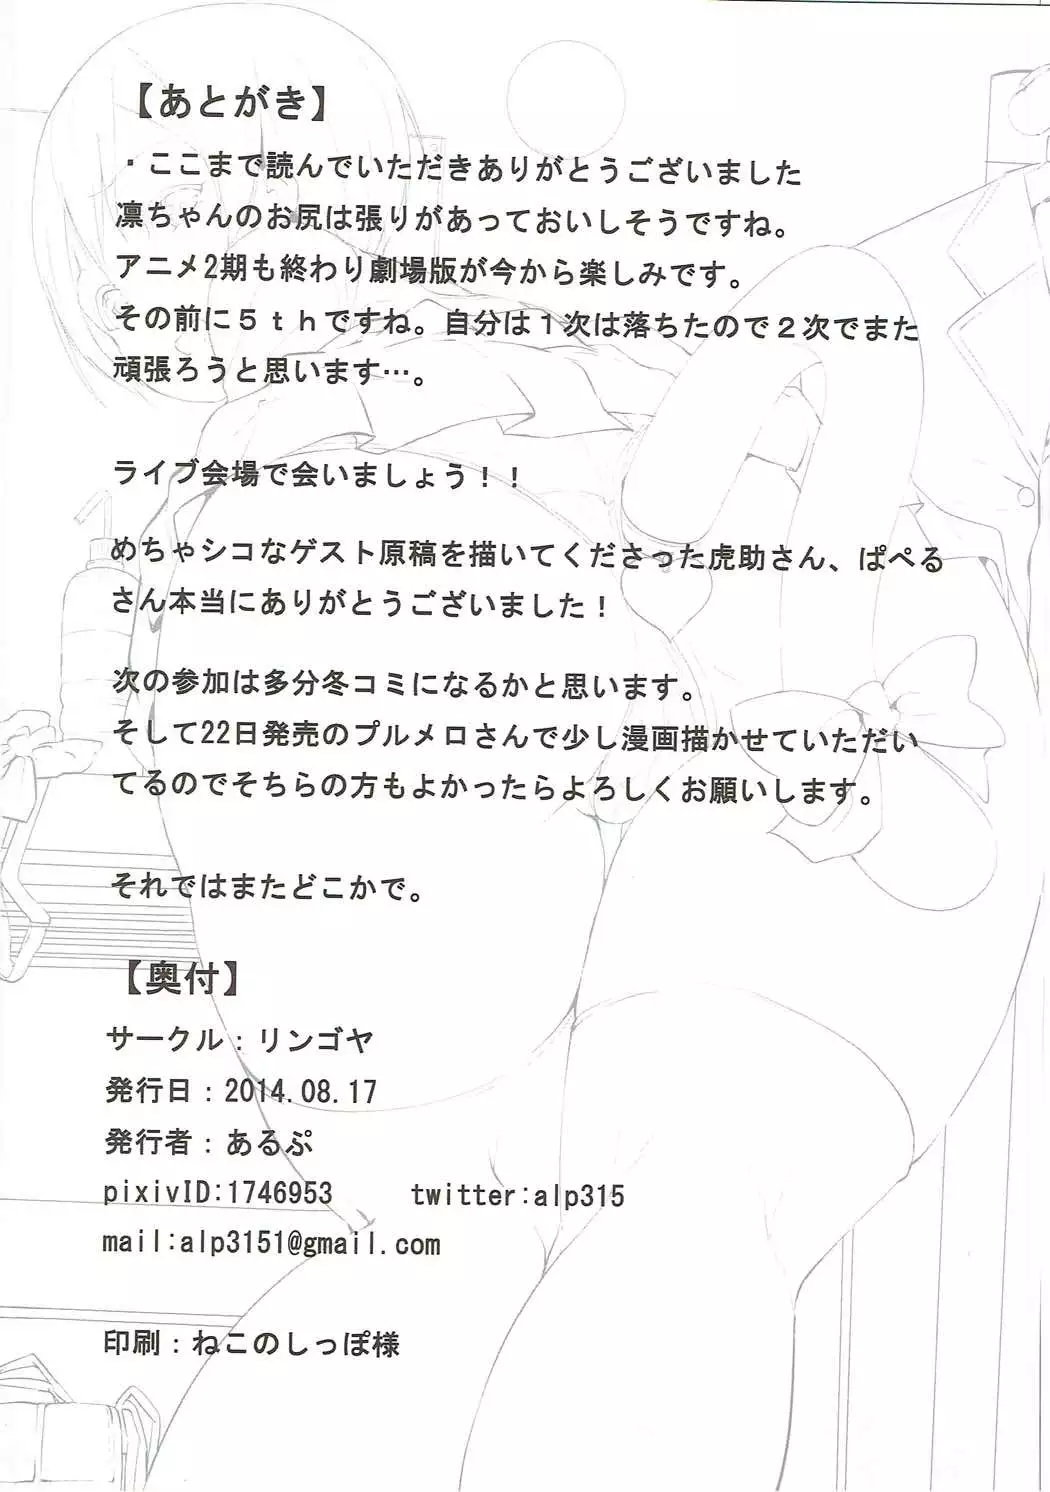 【あとがき】
・ここまで読んでいただきありがとうございました
凛ちゃんのお尻は張りがあっておいしそうですね。
アニメ2期も終わり劇場版が今から楽しみです。
その前に５ｔｈですね。自分は１次は落ちたので２次でまた
頑張ろうと思います…。
ライブ会場で会いましょう！！
めちゃシコなゲスト原稿を描いてくださった虎助さん、ぱぺる
さん本当にありがとうございました！
次の参加は多分冬コミになるかと思います。
そして22日発売のプルメロさんで少し漫画描かせていただい
てるのでそちらの方もよかったらよろしくお願いします。
それではまたどこかで。
【奥付】
サークル：リンゴヤ
発行日：2014.08.17
発行者：あるぷ
pixivID:1746953 twitter:alp315
mail:alp3151@gmail.com
印刷：ねこのしっぽ様